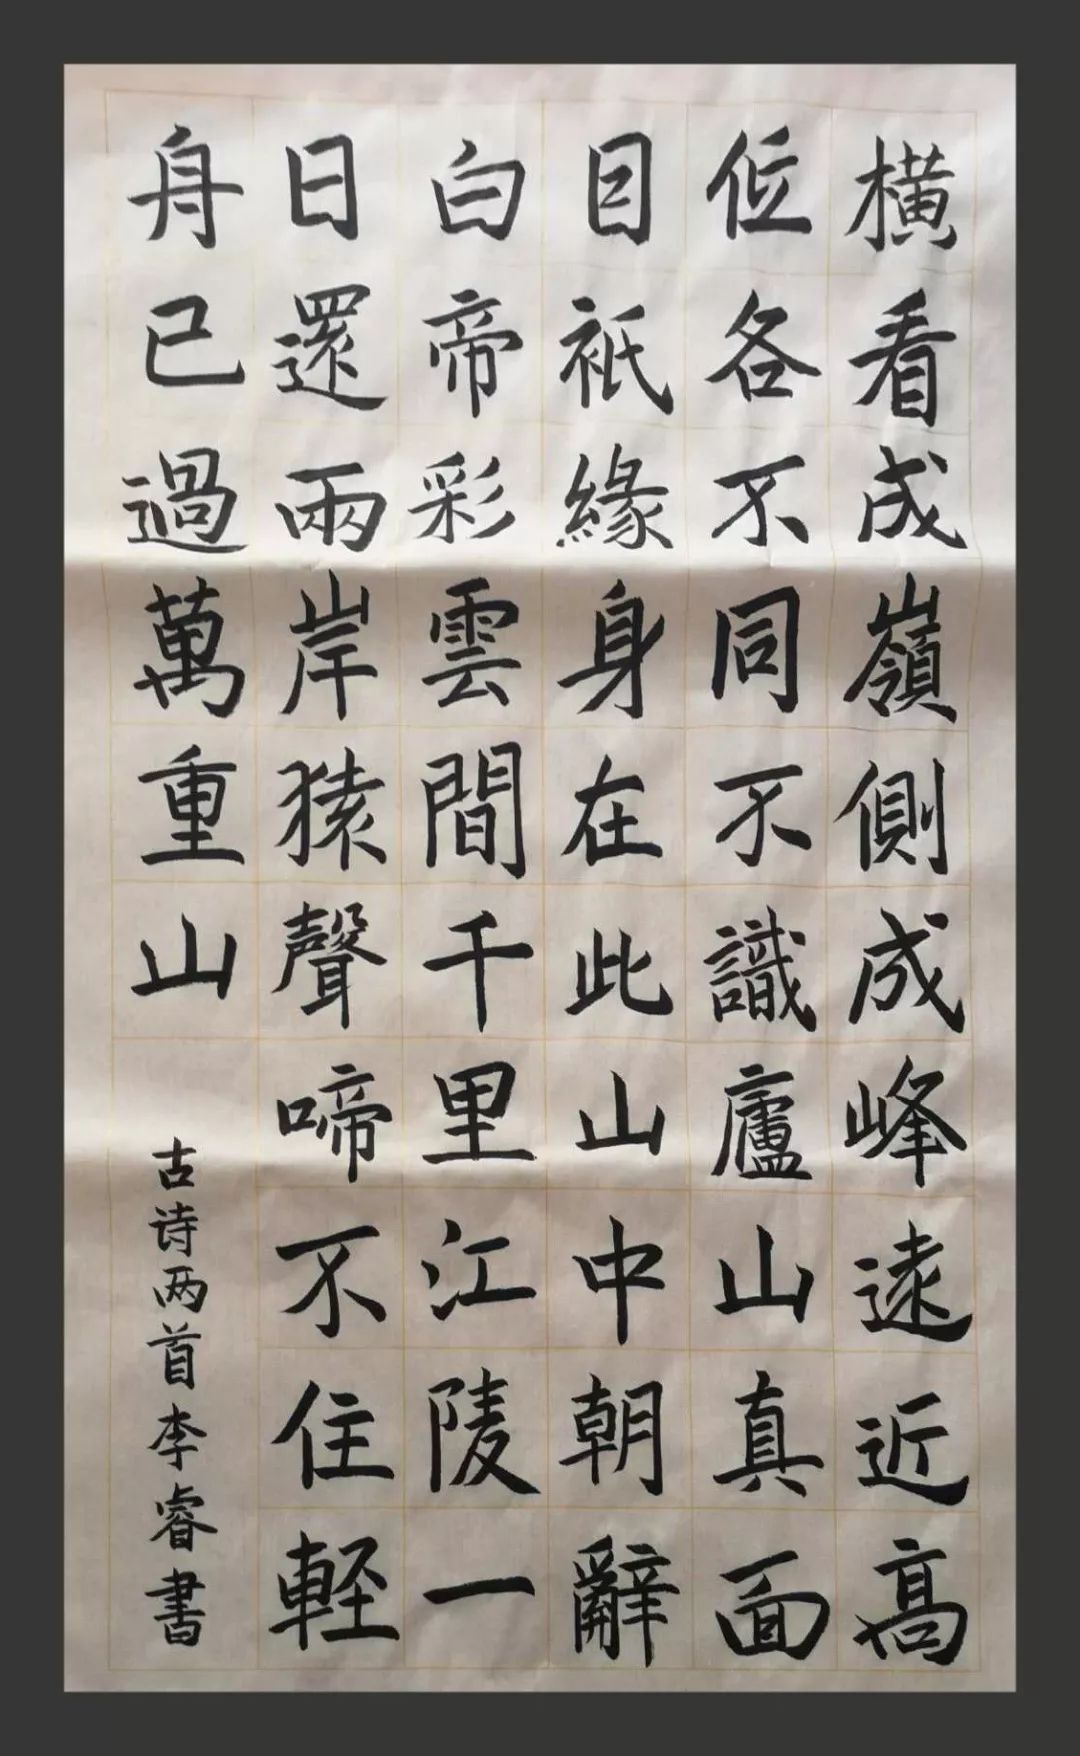 橫看成嶺側成峰遠近高
位各不同不識廬山真面
目祇緣身在此山中朝辭
白帝彩雲間千里江陵一
日還兩岸猿聲啼不住輕
舟已過萬重山
古诗两首李睿書